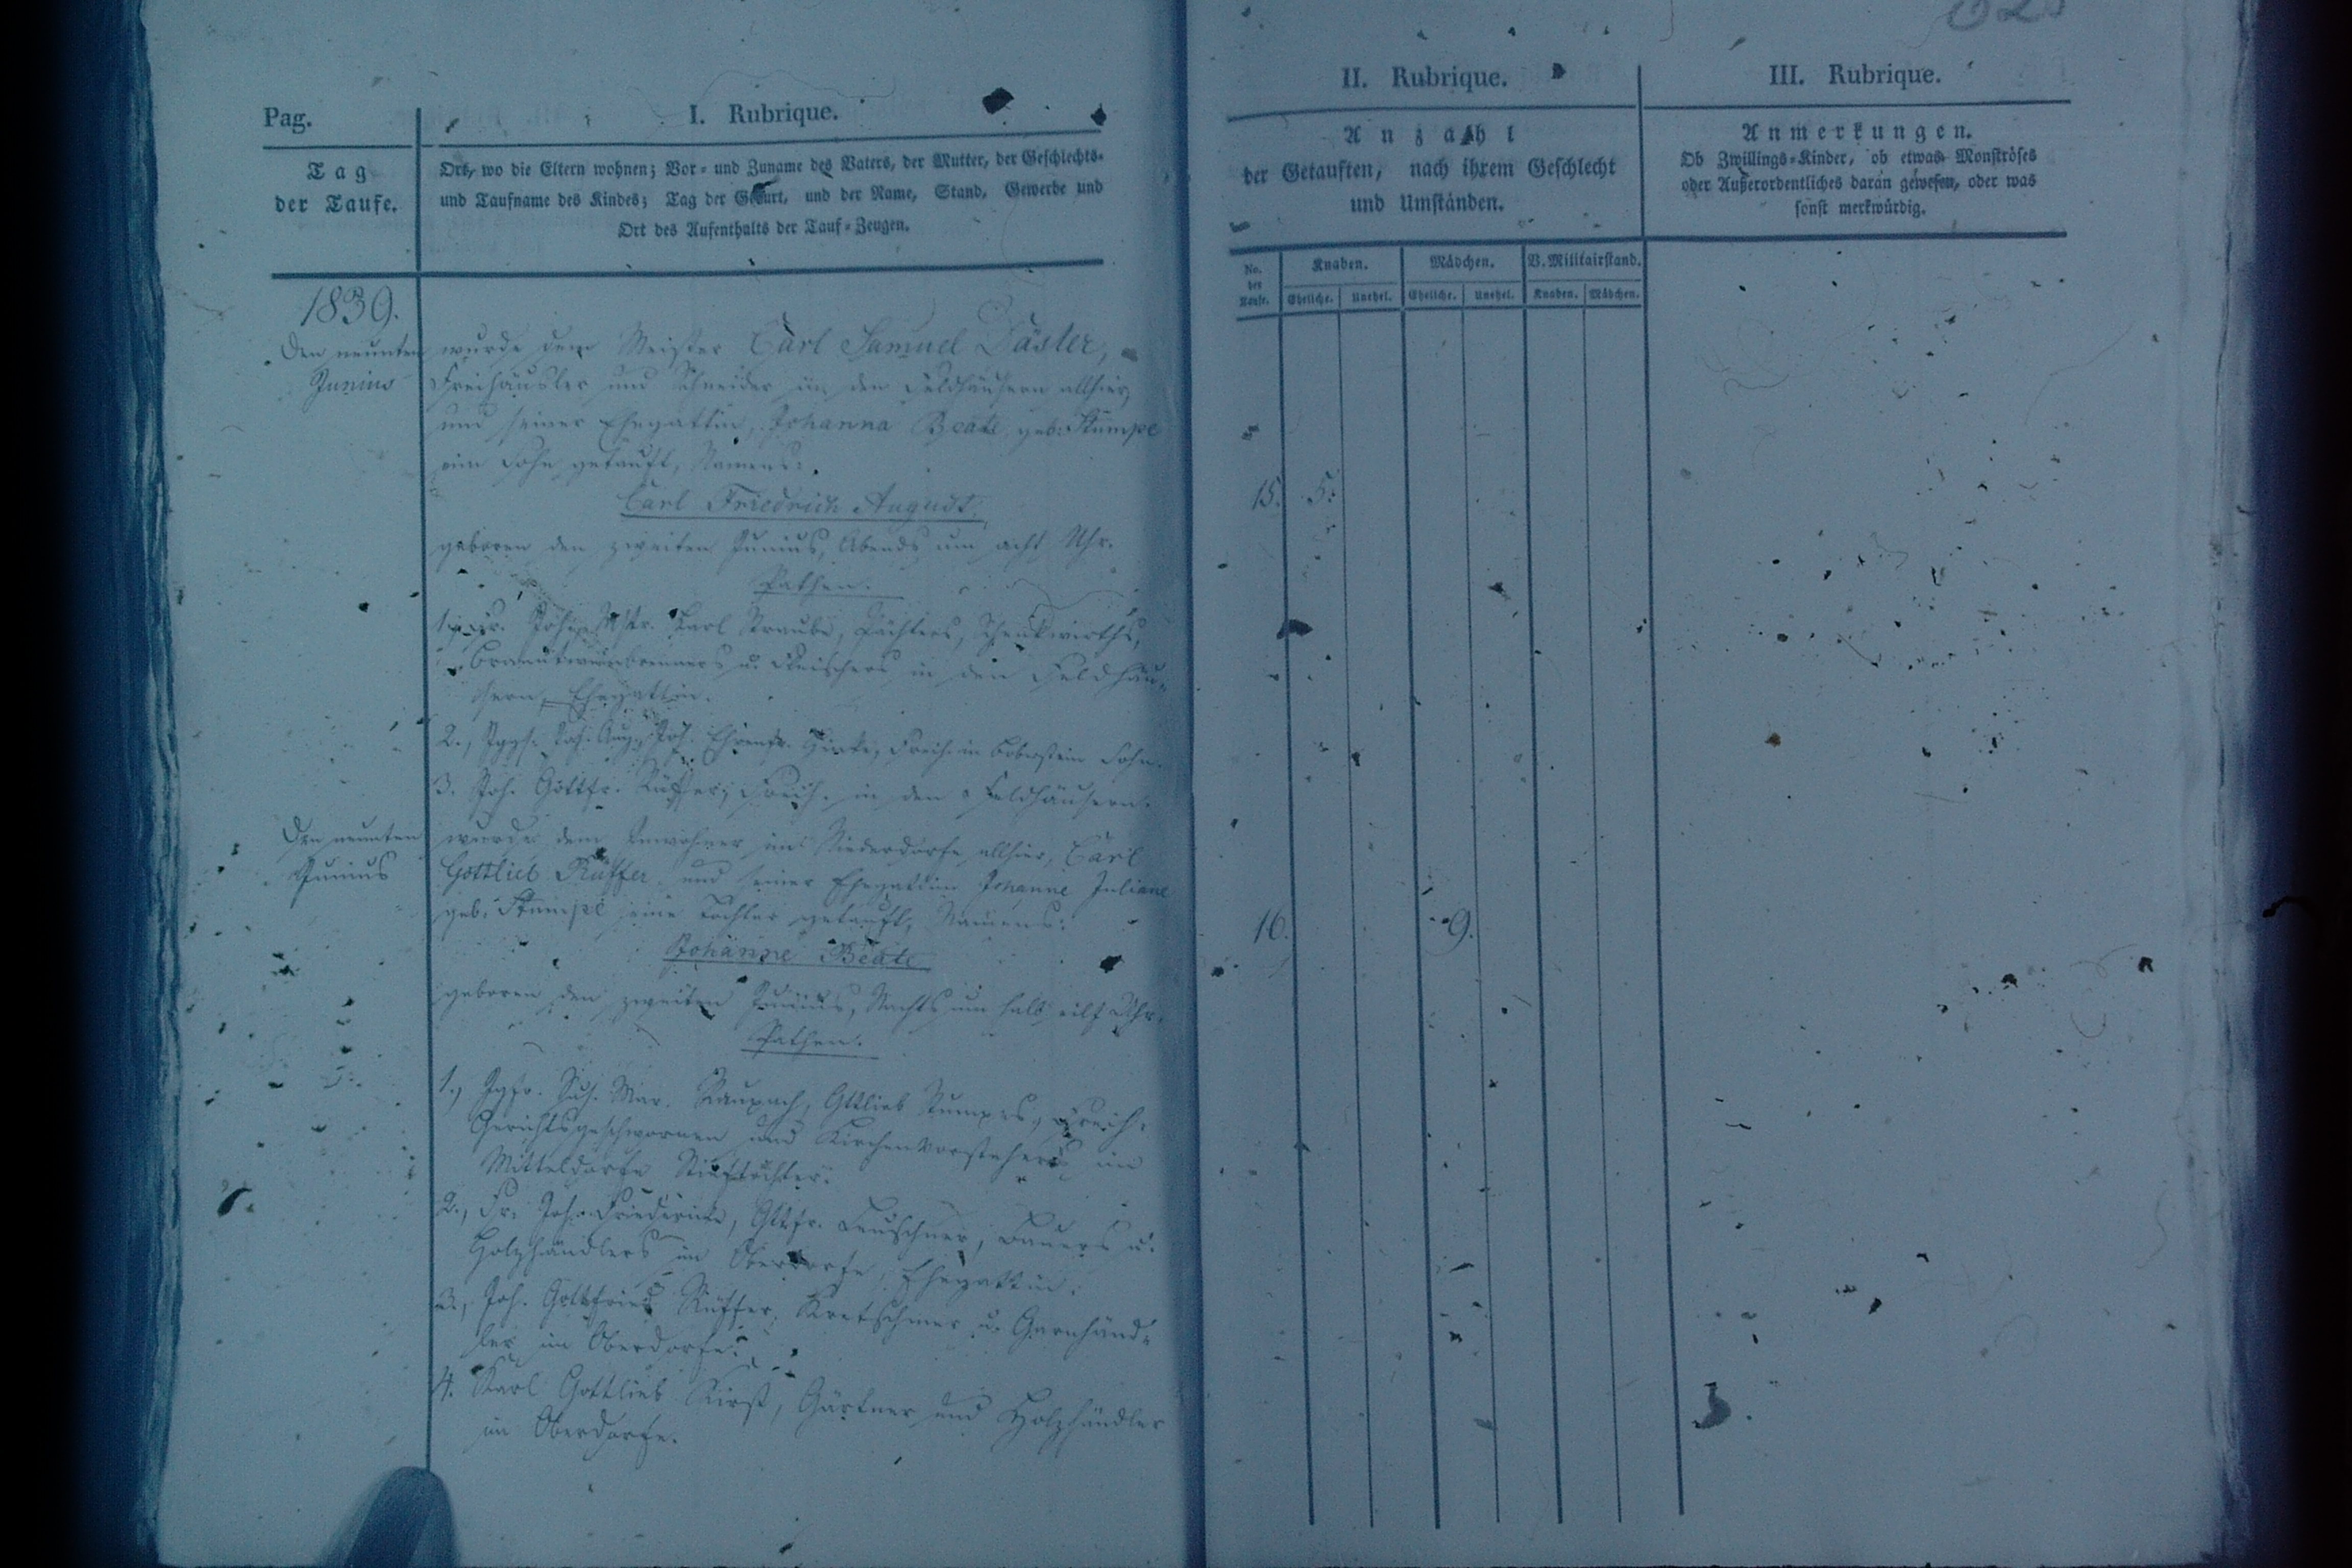 Pag.
I. Rubrique.
Tag
der Taufe.
Ort, wo die Eltern wohnen; Vor- und Zuname des Vaters, der Mutter, der Geschlechts-
und Taufname des Kindes; Tag der Geburt, und der Name, Stand, Gewerbe und
Ort des Aufenthalts der Tauf-Zeugen.
1839.
Den neunten
Junius
wurde dem Meister Carl Samuel Däsler,
Freihäusler und Schneider in den Feldhäusern allhier,
und seiner Ehegattin, Johanna Beate geb: Stumpe
ein Sohn getauft, Namens:
Carl Friedrich August,
geboren den zweiten Junius, Abends um acht Uhr.
Pathen.
1., Fr. Joh. Mstr. Karl Straube, Pächters, Schenkwirths,
Branntweinbrenners u. Fleischers in den Feldhäu-
sern, Ehegattin.
2., Joh. Ehrenfr. Freih. in Boberstein Sohn.
3. Joh. Gottfr. Rüffer, Freih. in den Feldhäusern.
Den neunten
Junius
wurde dem Inwohner im Niederdorfe allhier, Carl
Gottlieb Rüffer und seiner Ehegattin Johanne Juliane
geb: Stumpe eine Tochter getauft, Namens:
Johanne Beate
geboren den zweiten Junius, Nachts um halb eilf Uhr.
Pathen.
1., Jgfr. Mar. Raupach, Gttlieb Stumpes, Freih.
Gerichtsgeschwornen und Kirchenvorstehers im
Mitteldorfe Stieftochter.
2., Fr. Joh. Friedericke, Gttfr. Leuschner, Bauers u.
Holzhändlers im Oberdorfe, Ehegattin.
3., Joh. Gottfried Rüffer, Kretschmer u. Garnhänd-
ler im Oberdorfe.
4. Karl Gottlieb Kirst, Gärtner und Holzhändler
im Oberdorfe.
II. Rubrique.
Anzahl
der Getauften, nach ihrem Geschlecht
und Umständen.
No. der Taufe.
Knaben.
Mädchen.
V. Militairstand.
Eheliche. Unehel. Eheliche. Unehel. Knaben. Mädchen.
15. 5.
16. 9.
III. Rubrique.
Anmerkungen.
Ob Zwillings-Kinder, ob etwas Monströses
oder Außerordentliches daran gewesen, oder was
sonst merkwürdig.